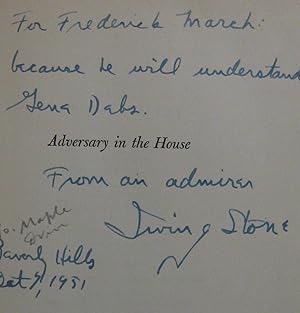 For Frederick March:
because he will understand
Gena Dabs.
Adversary in the House
From an admirer
Irving Stone
Maple
Beverly Hills
Oct 9, 1951